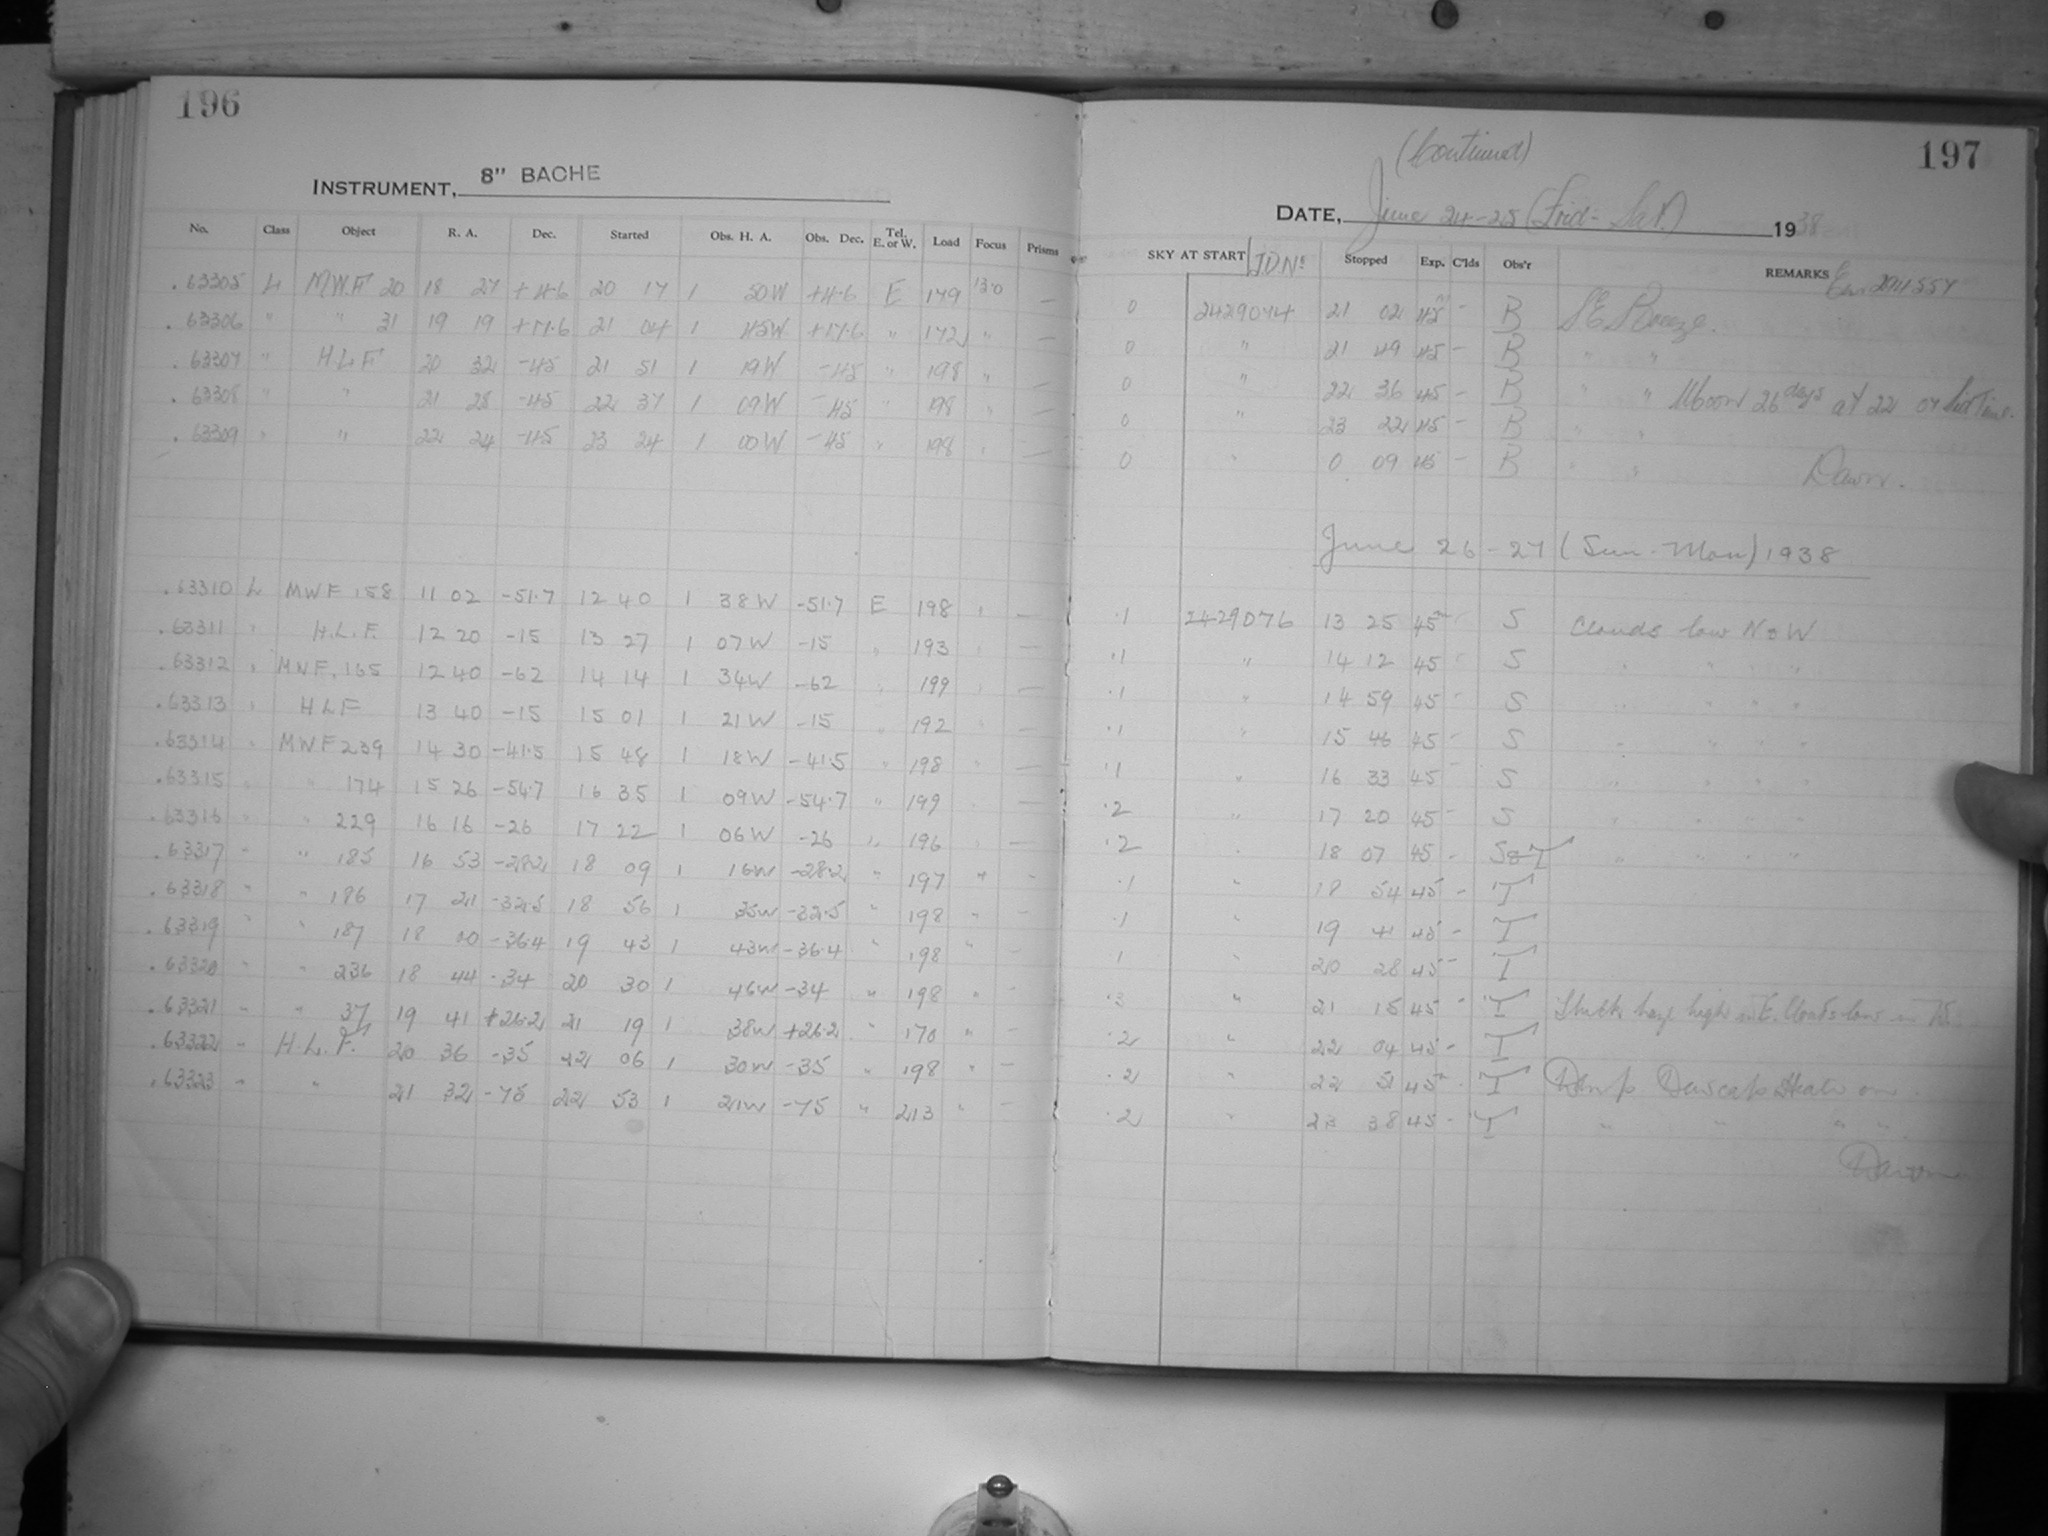 196
INSTRUMENT, 8" BACHE
No. Class Object R. A. Dec. Started Obs. H. A. Obs. Dec. Tel. E. or W. Load Focus Prisms
.63305 L M.W.F 20 18 27 +4.6 20 17 1 50W +4.6 E 179 13.0 —
.63306 " " 31 19 19 +17.6 21 04 1 45W +17.6 " 172 " —
.63307 " H.L.F 20 32 -45 21 51 1 19W -45 " 198 " —
.63308 " " 21 28 -45 22 37 1 09W -45 " 198 " —
.63309 " " 22 24 -45 23 24 1 00W -45 " 198 " —
.63310 L MWF 158 11 02 -51.7 12 40 1 38W -51.7 E 198 " —
.63311 " H.L.F. 12 20 -15 13 27 1 07W -15 " 193 " —
.63312 " MWF.165 12 40 -62 14 14 1 34W -62 " 199 " —
.63313 " HLF 13 40 -15 15 01 1 21W -15 " 192 " —
.63314 " MWF 239 14 30 -41.5 15 48 1 18W -41.5 " 198 " —
.63315 " " 174 15 26 -54.7 16 35 1 09W -54.7 " 199 " —
.63316 " " 229 16 16 -26 17 22 1 06W -26 " 196 " —
.63317 " " 185 16 53 -28.2 18 09 1 16W -28.2 " 197 " —
.63318 " " 186 17 21 -32.5 18 56 1 35W -32.5 " 198 " —
.63319 " " 187 18 00 -36.4 19 43 1 43W -36.4 " 198 " —
.63320 " " 236 18 44 -34 20 30 1 46W -34 " 198 " —
.63321 " " 37 19 41 +26.2 21 19 1 38W +26.2 " 170 " —
.63322 " H.L.F. 20 36 -35 22 06 1 30W -35 " 198 " —
.63323 " " 21 32 -75 22 53 1 21W -75 " 213 " —
(Continued) 197
DATE, June 24-25 (Frid-Sat) 1938
SKY AT START JDNo Stopped Exp. C'lds Obs'r REMARKS
0 2429074 21 02 45 - B SE Breeze.
0 " 21 49 45 - B " "
0 " 22 36 45 - B " " Moon 26 days at 22 07 Sid Time.
0 " 23 22 45 - B " "
0 " 0 09 45 - B " " Dawn.
June 26-27 (Sun-Mon) 1938
.1 2429076 13 25 45 - S Clouds low N & W
.1 " 14 12 45 - S " " " "
.1 " 14 59 45 - S " " " "
.1 " 15 46 45 - S " " " "
.1 " 16 33 45 - S " " " "
.2 " 17 20 45 - S " " " "
.2 " 18 07 45 - S&T " " " "
.1 " 18 54 45 - T
.1 " 19 41 45 - T
.1 " 20 28 45 - T
.3 " 21 15 45 - T Thick haze high in E. Clouds low in
.2 " 22 04 45 - T
.2 " 22 51 45 - T Damp Dewcap Heater on
.2 " 23 38 45 - T " " " "
Dawn